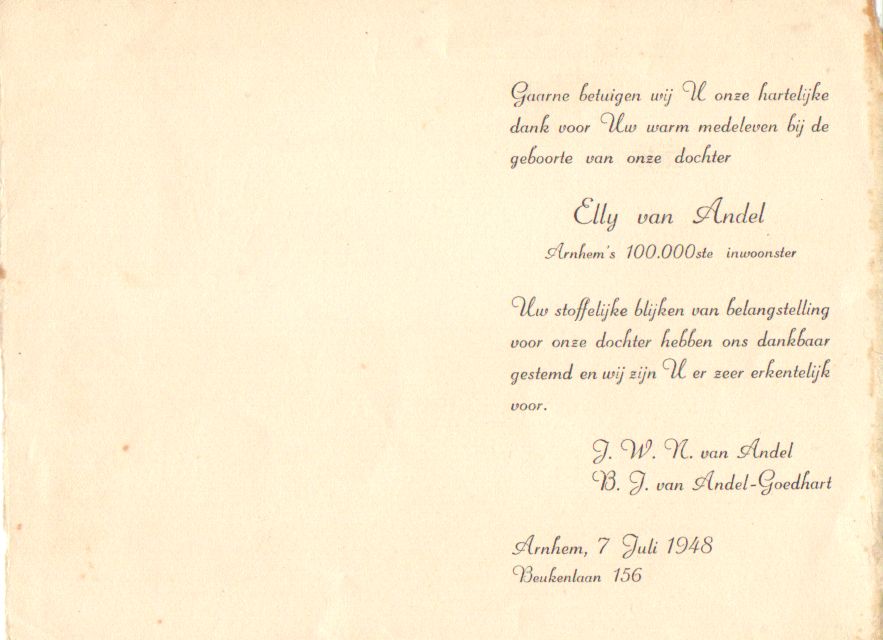 Gaarne betuigen wij U onze hartelijke
dank voor Uw warm medeleven bij de
geboorte van onze dochter
Elly van Andel
Arnhem's 100.000ste inwoonster
Uw stoffelijke blijken van belangstelling
voor onze dochter hebben ons dankbaar
gestemd en wij zijn U er zeer erkentelijk
voor.
J. W. N. van Andel
B. J. van Andel-Goedhart
Arnhem, 7 Juli 1948
Beukenlaan 156